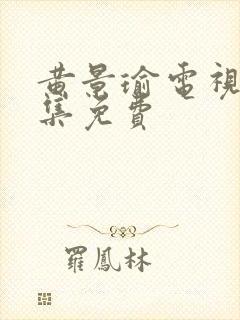 黄景瑜電視
集免費
羅鳳林